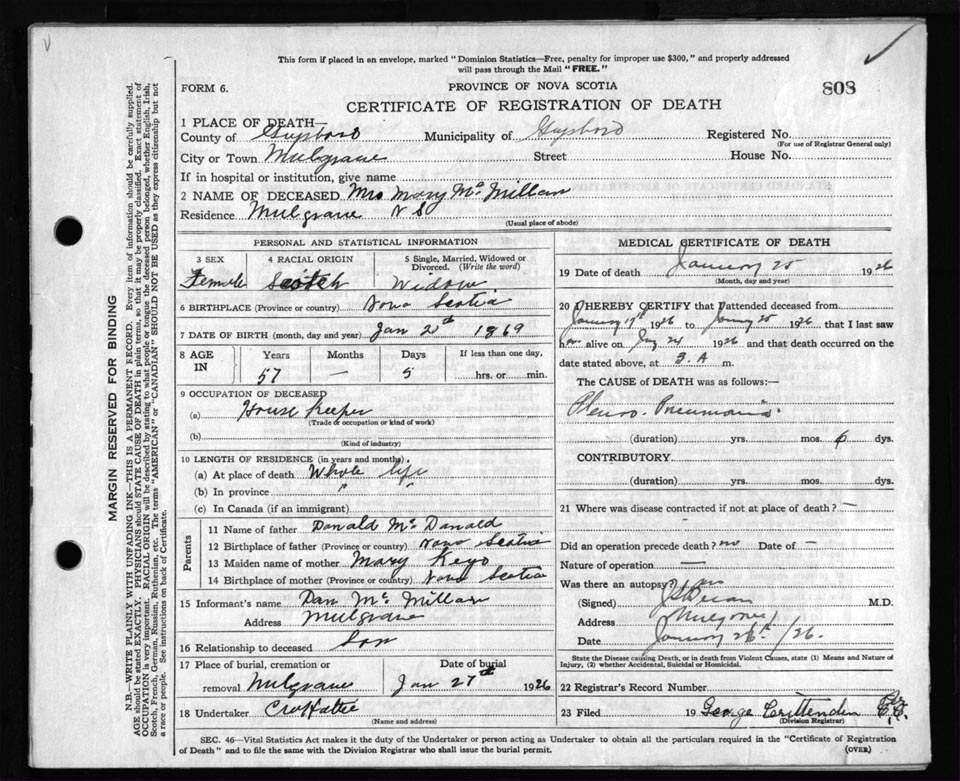 This form if placed in an envelope, marked "Dominion Statistics—Free, penalty for improper use $300," and properly addressed
will pass through the Mail "FREE."
FORM 6.
PROVINCE OF NOVA SCOTIA
808
CERTIFICATE OF REGISTRATION OF DEATH
MARGIN RESERVED FOR BINDING
N.B.—WRITE PLAINLY WITH UNFADING INK—THIS IS A PERMANENT RECORD. Every item of information should be carefully supplied.
AGE should be stated EXACTLY. PHYSICIANS should STATE CAUSE OF DEATH in plain terms, so that it may be properly classified. Exact statement of
OCCUPATION is very important. RACIAL ORIGIN will be described by stating to what people or tongue the deceased person belonged, whether English, Irish,
Scotch, French, German, Russian, Ruthenian, etc. The terms "AMERICAN" or "CANADIAN" SHOULD NOT BE USED as they express citizenship but not
a race or people. See instructions on back of Certificate.
1 PLACE OF DEATH—
County of Guysboro Municipality of Guysboro Registered No.
(For use of Registrar General only)
City or Town Mulgrave Street House No.
If in hospital or institution, give name
2 NAME OF DECEASED Mrs Mary Mc Millan
Residence Mulgrave N S
(Usual place of abode)
PERSONAL AND STATISTICAL INFORMATION
3 SEX 4 RACIAL ORIGIN 5 Single, Married, Widowed or
Divorced. (Write the word)
Female Scotch Widow
6 BIRTHPLACE (Province or country) Nova Scotia
7 DATE OF BIRTH (month, day and year) Jan 20th 1869
8 AGE IN Years Months Days If less than one day,
57 — 5 hrs. or min.
9 OCCUPATION OF DECEASED
(a) House Keeper
(Trade or occupation or kind of work)
(b)
(Kind of industry)
10 LENGTH OF RESIDENCE (in years and months)
(a) At place of death Whole life
(b) In province " "
(c) In Canada (if an immigrant)
Parents
11 Name of father Donald Mc Donald
12 Birthplace of father (Province or country) Nova Scotia
13 Maiden name of mother Mary
14 Birthplace of mother (Province or country) Nova Scotia
15 Informant's name Dan Mc Millan
Address Mulgrave
16 Relationship to deceased Son
17 Place of burial, cremation or Date of burial
removal Mulgrave Jan 27th 1926
18 Undertaker
(Name and address)
MEDICAL CERTIFICATE OF DEATH
19 Date of death January 25 1926
(Month, day and year)
20 I HEREBY CERTIFY that I attended deceased from
January 19th 1926 to January 25 1926 that I last saw
her alive on Jay 24 1926 and that death occurred on the
date stated above, at 3. A m.
The CAUSE of DEATH was as follows:—
Pleuro-Pneumonia
(duration) yrs. mos. 6 dys.
CONTRIBUTORY
(duration) yrs. mos. dys.
21 Where was disease contracted if not at place of death? —
Did an operation precede death? no Date of —
Nature of operation —
Was there an autopsy? no
(Signed) M.D.
Address Mulgrave
Date January 26th /26.
State the Disease causing Death, or in death from Violent Causes, state (1) Means and Nature of
Injury, (2) whether Accidental, Suicidal or Homicidal.
22 Registrar's Record Number
23 Filed 19 George Crittenden
(Division Registrar)
SEC. 46—Vital Statistics Act makes it the duty of the Undertaker or person acting as Undertaker to obtain all the particulars required in the "Certificate of Registration
of Death" and to file the same with the Division Registrar who shall issue the burial permit.
(OVER)